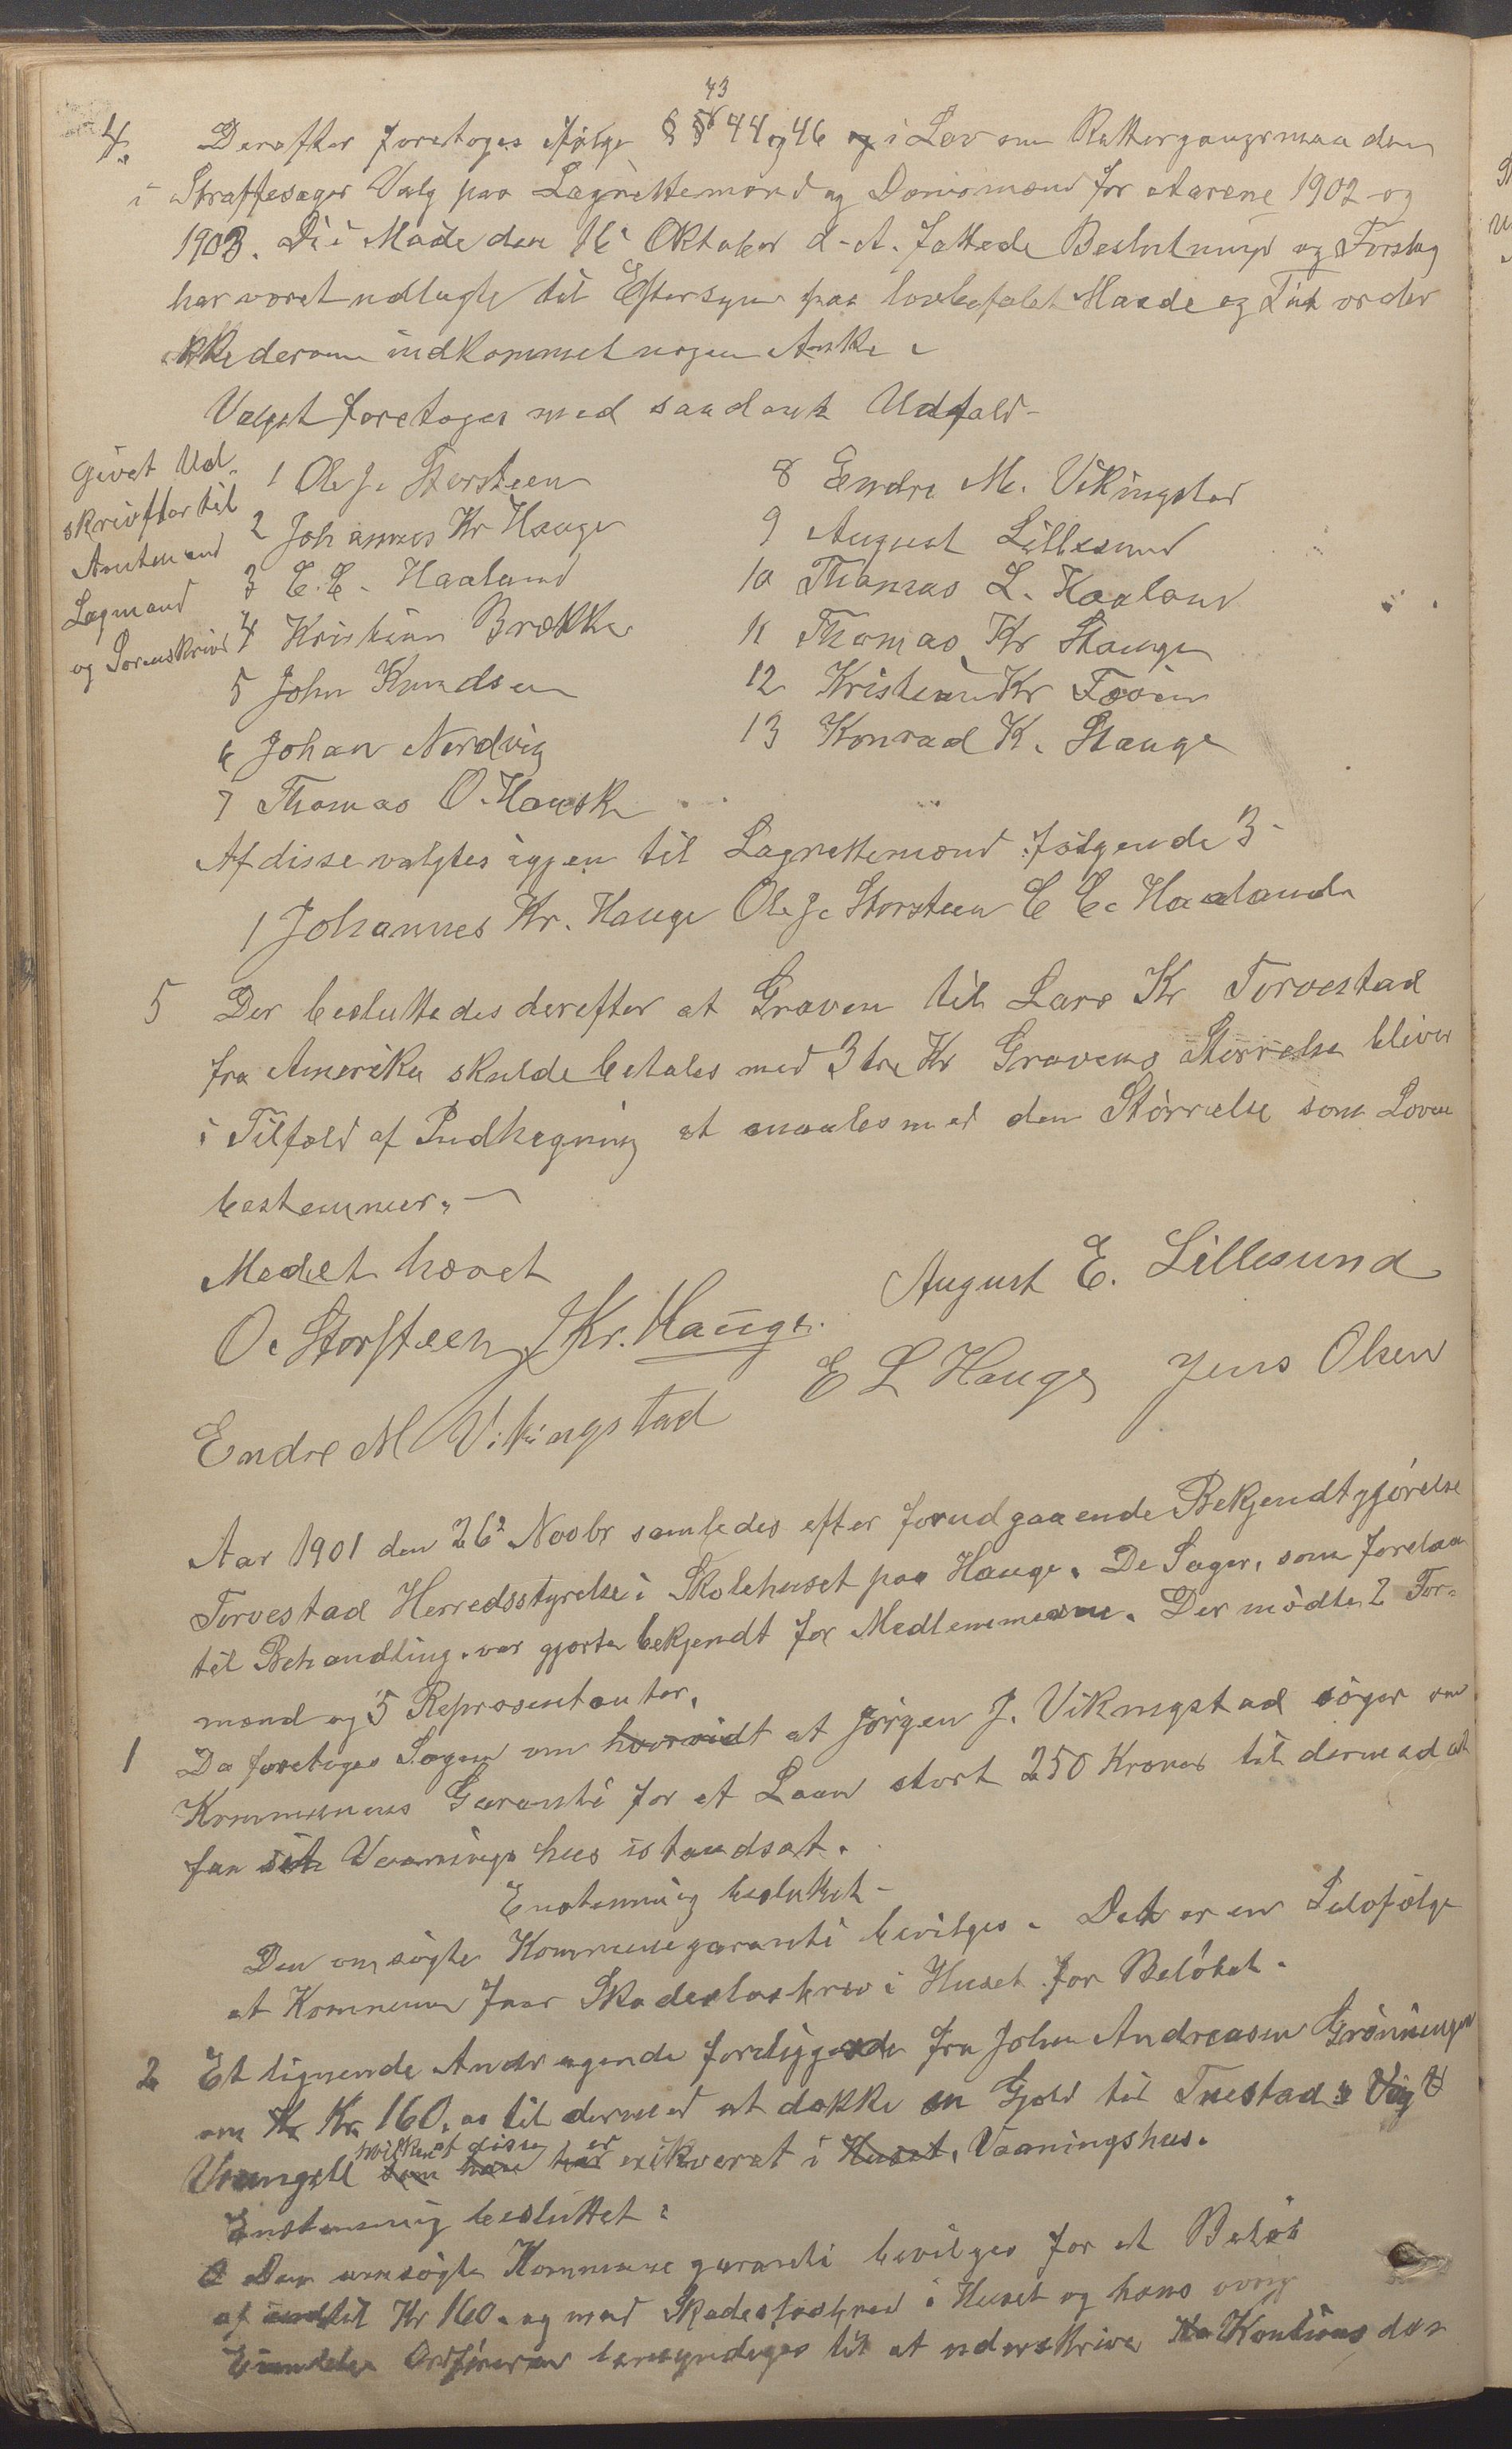 43
4. Derefter foretoges ifølge §§ 44 og 46 i Lov om Rettergangsmaaden
i Straffesager Valg paa Lagrettemænd og Domsmænd for Aarene 1902 og
1903. De i Møde den 16 Oktober d. A. fattede Beslutninger og Forslag
har været udlagte til Eftersyn paa lovbefalet Maade og Tid og der
ikke derom indkommet nogen Anke.
Valget foretoges med saadant Udfald
Givet Ud-
skrifter til
Amtmand
Lagmand
og Sorenskriver
1 Ole J. Storsteen
2 Johannes Kr Hauge
3 E. E. Haaland
4 Kristian Brække
5 John Knudsen
6 Johan Nordvig
7 Thomas O. Hauske
8 Endre M. Vikingstad
9 August Lillesund
10 Thomas L. Haaland
11 Thomas Kr Stange
12 Kristian Kr
13 Konrad K. Stange
Af disse valgtes igjen til Lagrettemænd følgende 3
1 Johannes Kr. Hauge Ole J. Storsteen E E. Haaland
5 Der besluttedes derefter at Graven til Lars Kr Torvestad
fra Amerika skulde betales med 3 tre Kr Gravens Størrelse bliver
i Tilfæld af Indhegning at maales med den Størrelse som Loven
bestemmer.
Mødet hævet
August E. Lillesund
O. Storsteen J Kr. Hauge.
E L Hauge Jens Olsen
Endre M Vikingstad
Aar 1901 den 26 Novbr samledes efter forudgaaende Bekjendtgjørelse
Torvestad Herredsstyrelse i Skolehuset paa Hauge. De Sager, som forelaa
til Behandling, var gjorte bekjendt for Medlemmerne. Der mødte 2 For-
mænd og 5 Repræsentanter.
1 Da foretoges Sagen om hvorvidt at Jørgen J. Vikingstad søger om
Kommunens Garanti for et Laan stort 250 Kroner til dermed at
faa sit Vaaningshus istandsat.
Enstemmig besluttet
Den omsøgte Kommunegaranti bevilges. Det er en Selvfølge
at Kommunen faar Skadesløsbrev i Huset for Beløbet.
2 Et lignende Andragende foreliggende fra John Andreasen Grønningen
om Kr 160.00 til dermed at dække en Gjæld til Tuestad Vig &
hvilken af disse er
Vrangell som han har exikveret i Huset. Vaaningshus.
Enstemmig besluttet:
Den omsøgte Kommunegaranti bevilges for et Beløb
af indtil Kr 160. og mod Skadesløsbrev i Huset og hans øvrige
Eiendele Ordføreren bemyndiges til at underskrive Kontions den